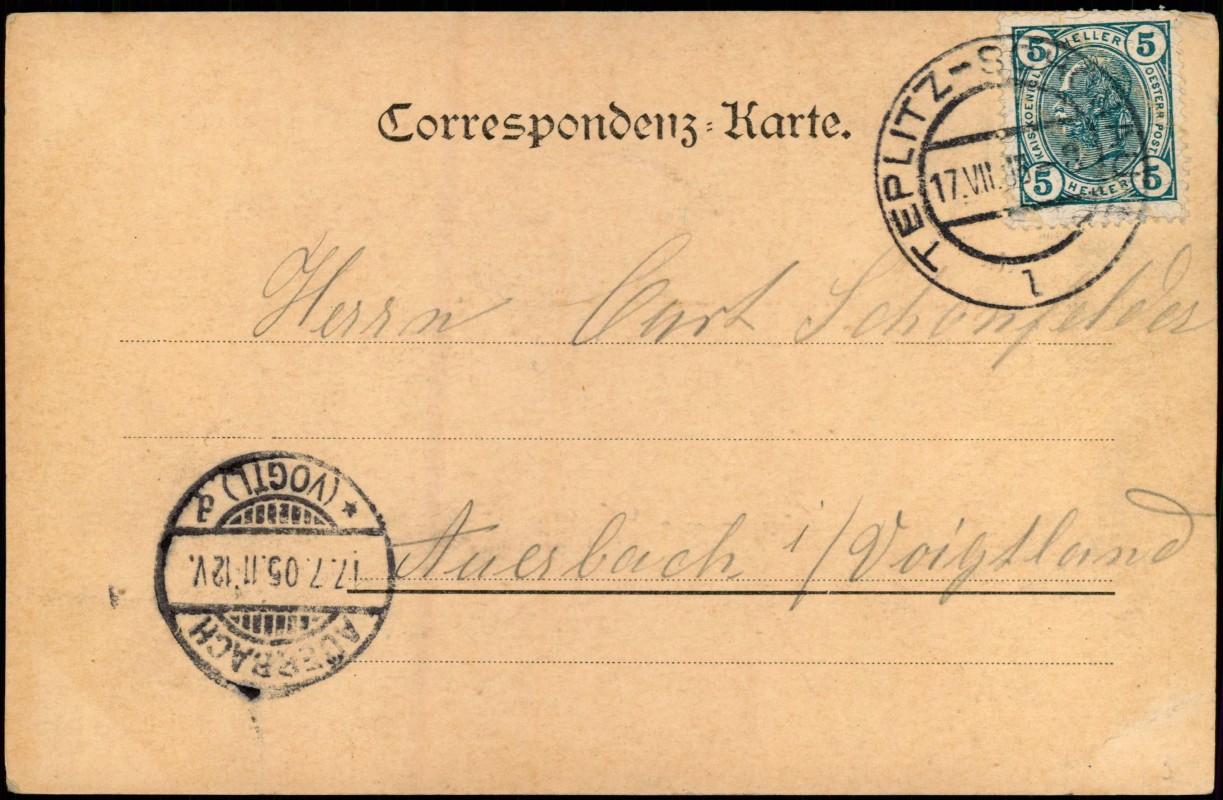 Correspondenz-Karte.
5 HELLER 5
KAIS. KOENIGL. OESTERR. POST
5 HELLER 5
TEPLITZ-
17.VII.
1
Herrn Curt Schönfelder
Auerbach i/Voigtland
* (VOGTL)
17.7.05.11-12V.
AUERBACH